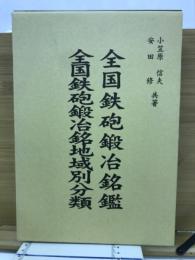 小笠原信夫
安田修 共著
全国鉄砲鍛冶銘鑑
全国鉄砲鍛冶銘地域別分類